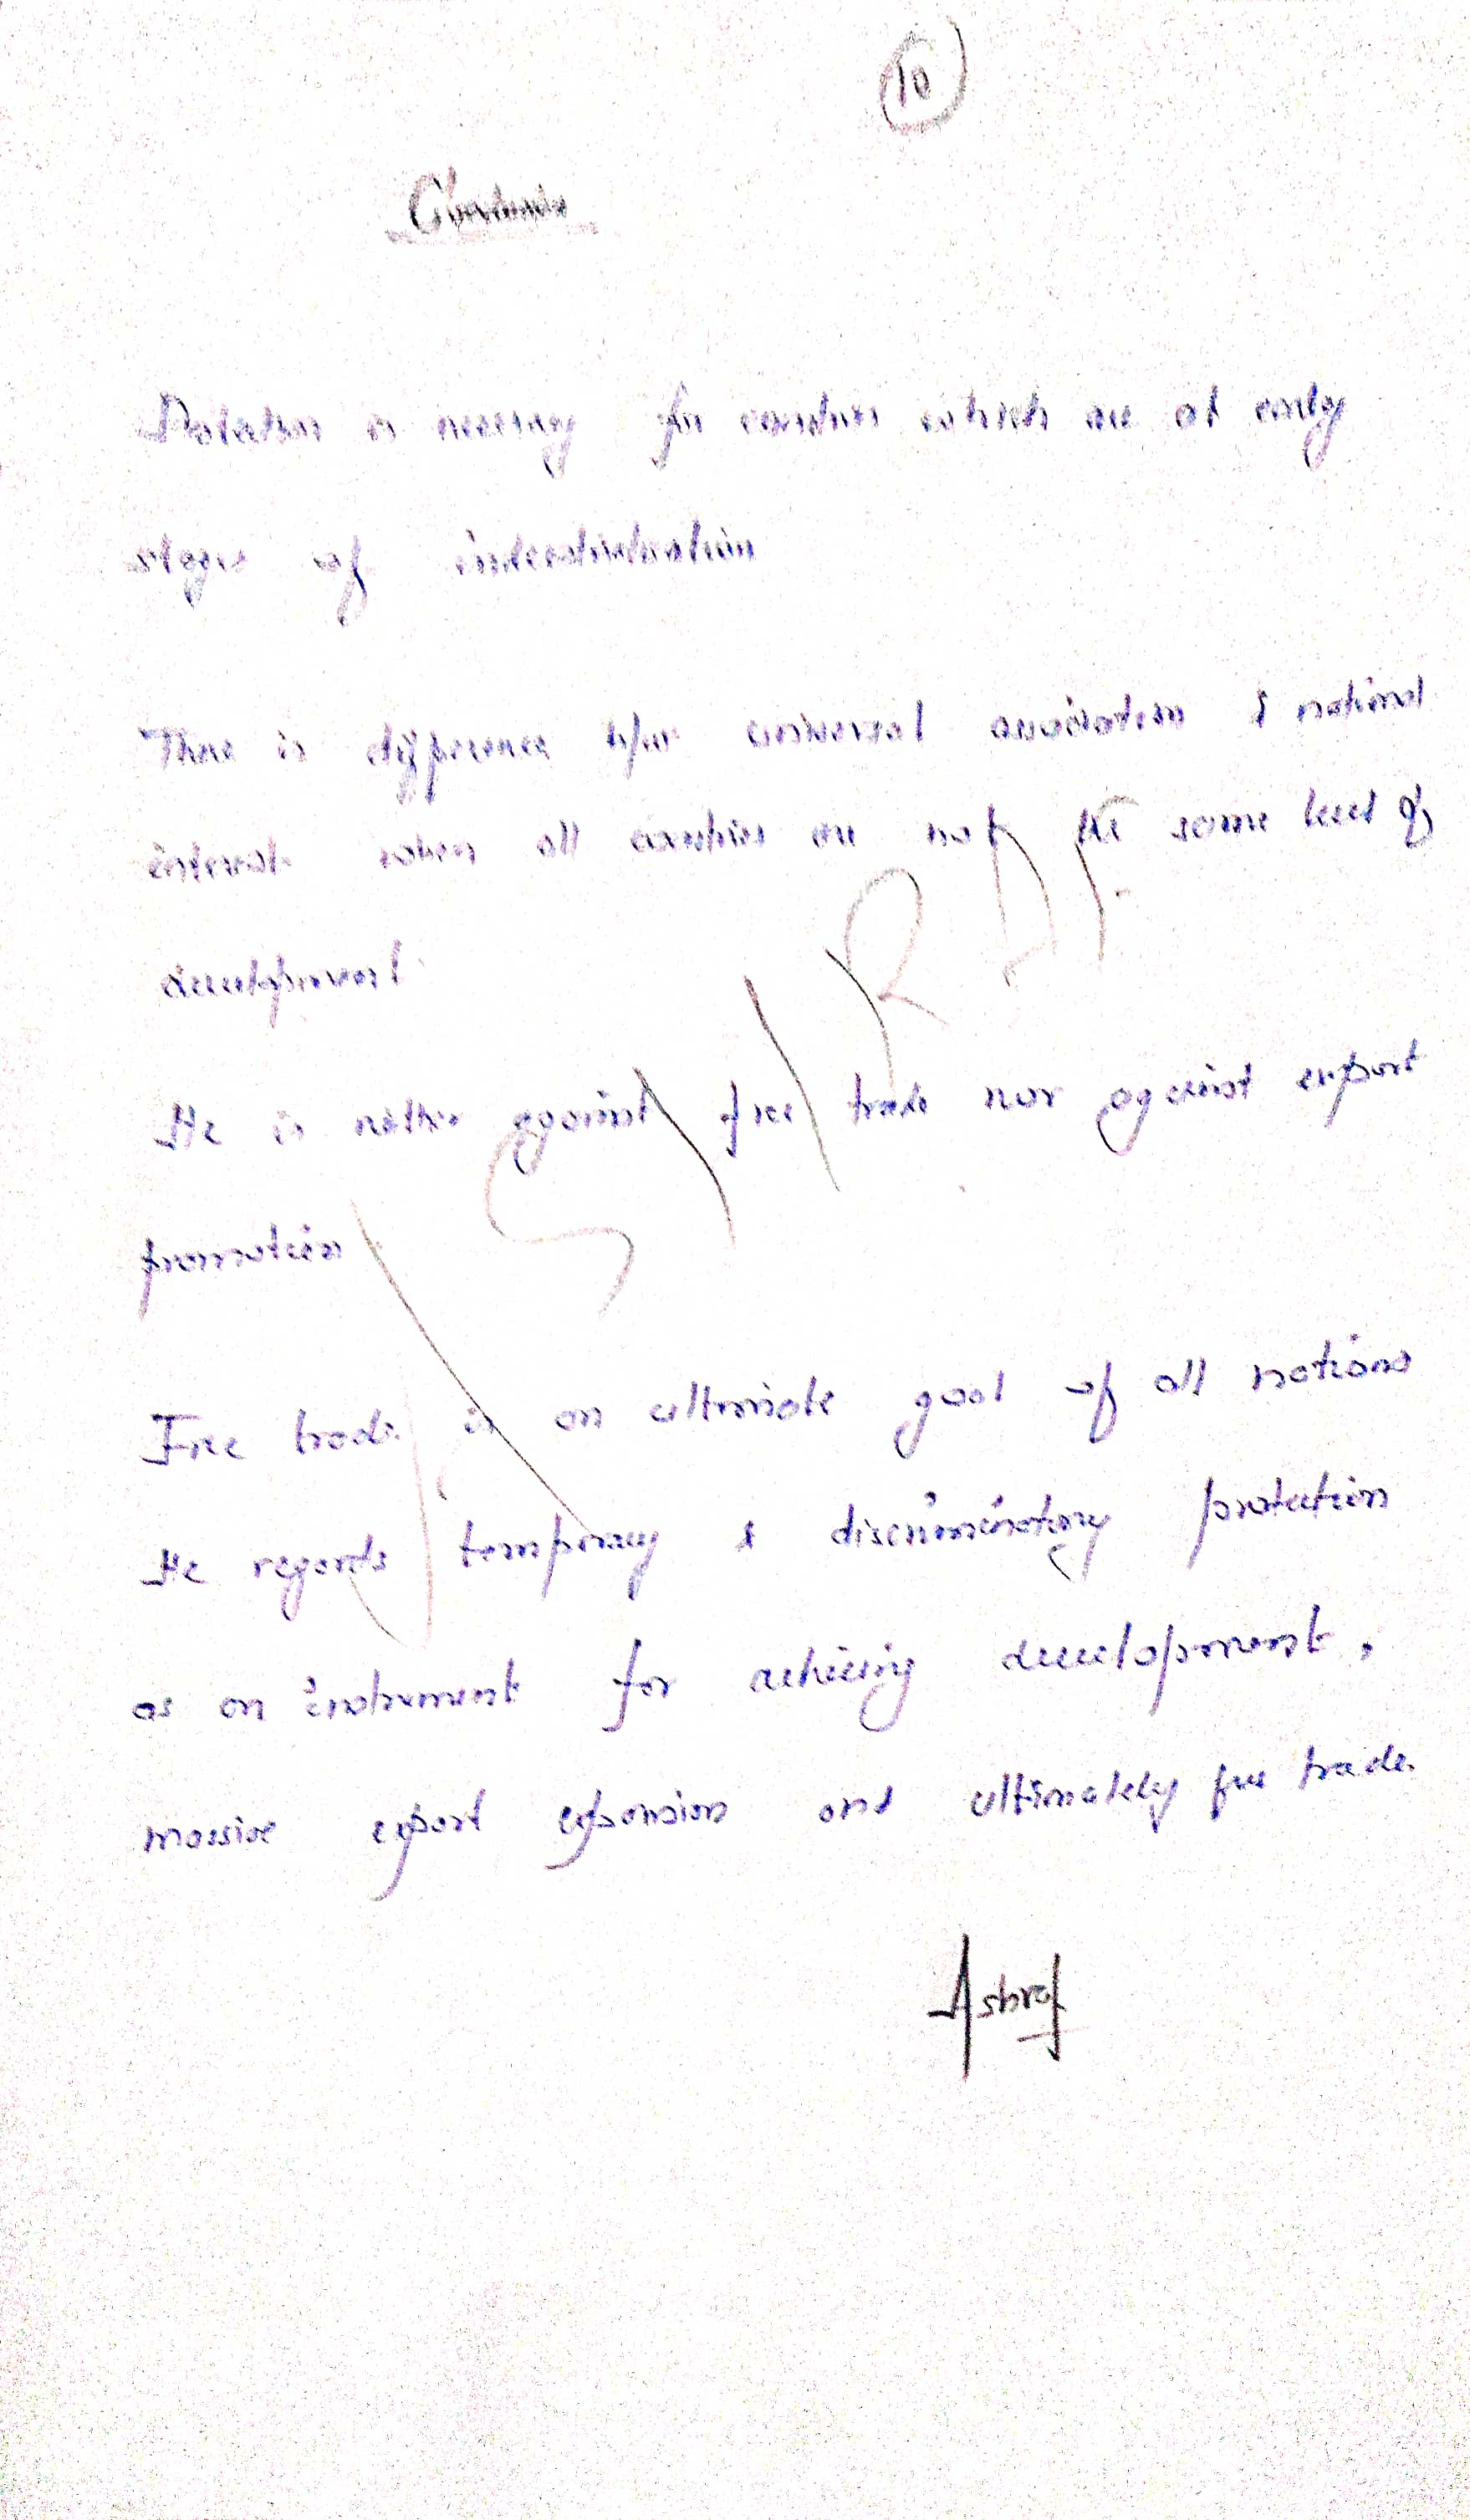 10
Protection is necessary for countries which are at early
stages of industrialisation
There is difference b/w universal association & national
interest when all countries are not the same level of
development.
He is neither against free trade nor against export
promotion
Free trade is an ultimate goal of all nations
He regards temporary & discriminatory protection
as an instrument for achieving development,
massive export expansion and ultimately free trade.
Ashraf